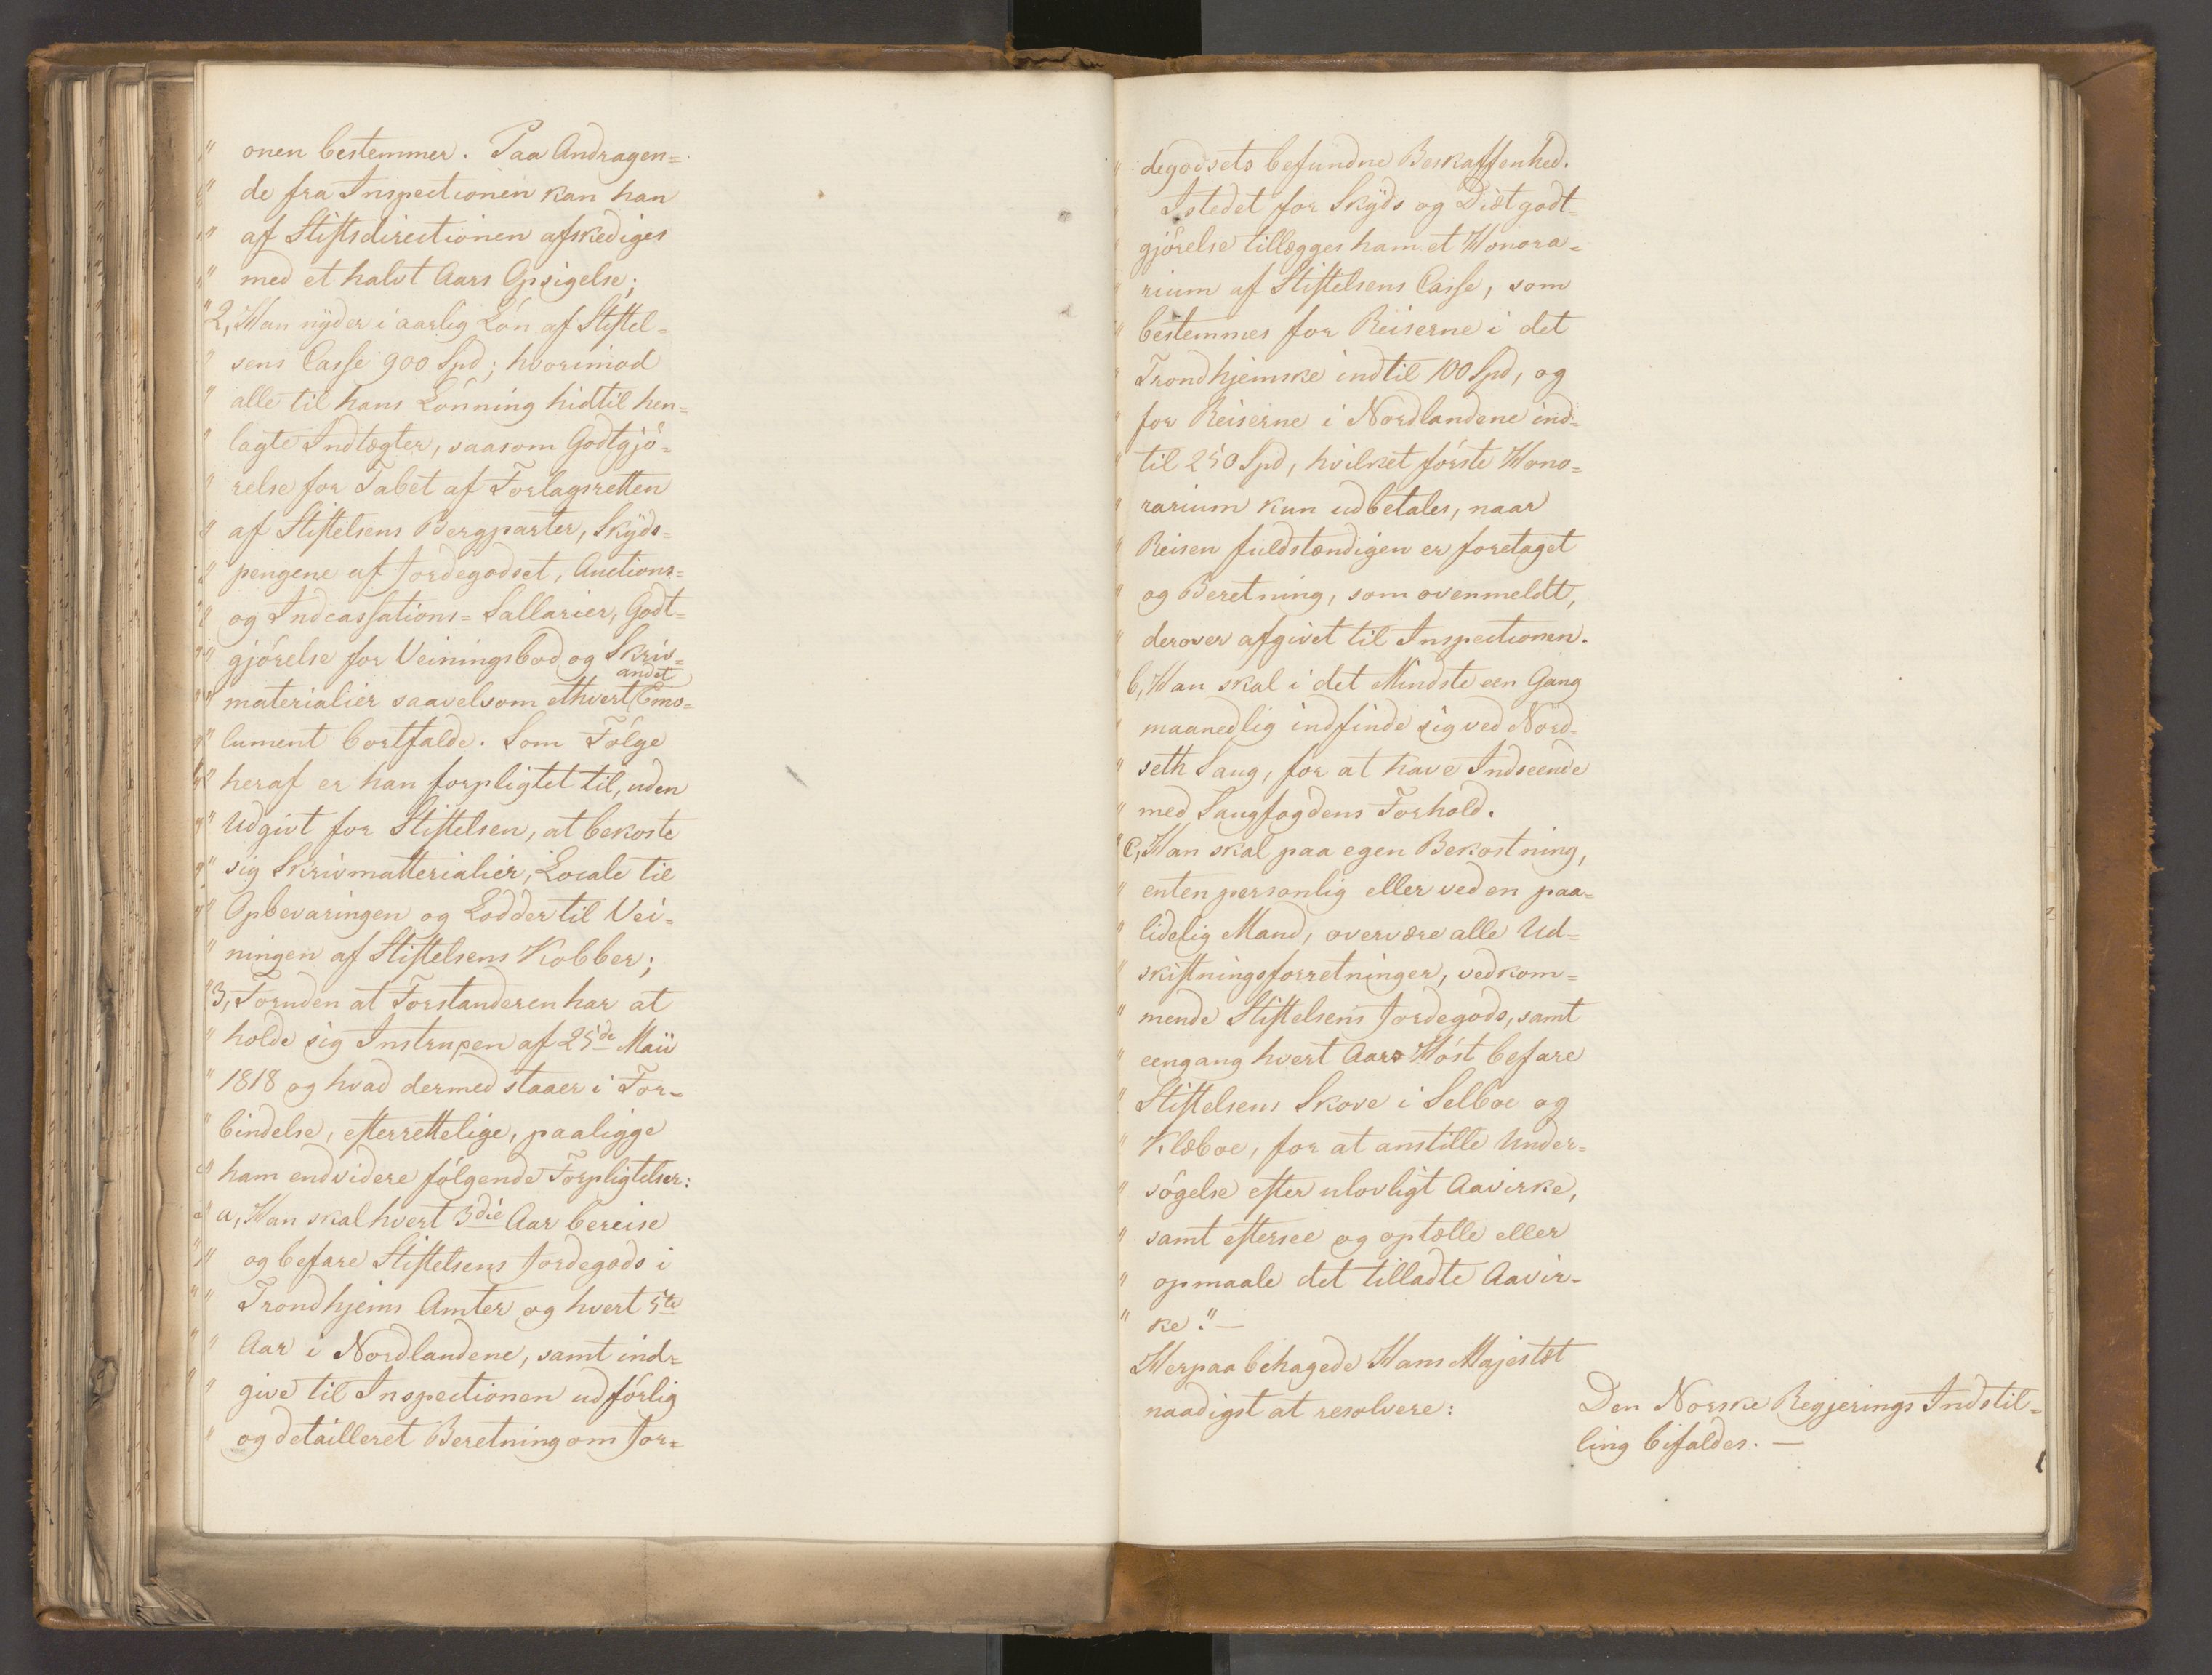 " onen bestemmer. Paa Andragen=
" de fra Inspectionen kan han
" af Stiftsdirectionen afskediges
" med et halvt Aars Opsigelse;
" 2, Han nyder i aarlig Lön af Stiftel=
" sens Casse 900 Spd; hvorimod
" alle til hans Lönning hidtil hen=
" lagte Indtægter, saasom Godtgjö=
" relse for Tabet af Forlagsretten
" af Stiftelsens Bergparter, Skyds=
" pengene af Jordegodset, Auctions=
" og Indcassations=Sallarier, Godt=
" gjörelse for Veiningsbod og Skriv=
" materialier saavelsom ethvert andet Emo=
" lument bortfalde. Som Fölge
" heraf er han forpligtet til, uden
" Udgivt for Stiftelsen, at bekoste
" sig Skrivmatterialier, Locale til
" Opbevaringen og Lodder til Vei=
" ningen af Stiftelsens Kobber;
" 3, Foruden at Forstanderen har at
" holde sig Instruxen af 25de Maii
" 1818 og hvad dermed staaer i For=
" bindelse, efterrettelige, paaligge
" ham endvidere fölgende Forpligtelser:
" a, Han skal hvert 3die Aar bereise
" og befare Stiftelsens Jordegods i
" Trondhjems Amter og hvert 5te
" Aar i Nordlandene, samt ind=
" give til Inspectionen udförlig
" og detailleret Beretning om Jor=
" degodsets befundne Beskaffenhed.
" Istedet for Skyds og Diætgodt=
" gjörelse tillægges ham et Honora=
" rium af Stiftelsens Casse, som
" bestemmes for Reiserne i det
" Trondhjemske indtil 100 Spd, og
" for Reiserne i Nordlandene ind=
" til 250 Spd, hvilket förste Hono=
" rarium kun udbetales, naar
" Reisen fuldstændigen er foretaget
" og Beretning, som ovenmeldt,
" derover afgivet til Inspectionen.
" b, Han skal i det Mindste een Gang
" maanedlig indfinde sig ved Nord=
" seth Saug, for at have Indseende
" med Saugfogdens Forhold.
" c, Han skal paa egen Bekostning,
" enten personlig eller ved en paa=
" lidelig Mand, overvære alle Ud=
" skiftningsforretninger, vedkom=
" mende Stiftelsens Jordegods, samt
" eengang hvert Aars Höst befare
" Stiftelsens Skove i Selboe og
" Klæboe, for at anstille Under=
" sögelse efter ulovligt Aavirke,
" samt eftersee og optælle eller
" opmaale det tilladte Aavir=
" ke." —
Herpaa behagede Hans Majestæt
naadigst at resolvere:
Den Norske Regjerings Indstil=
ling bifaldes. —